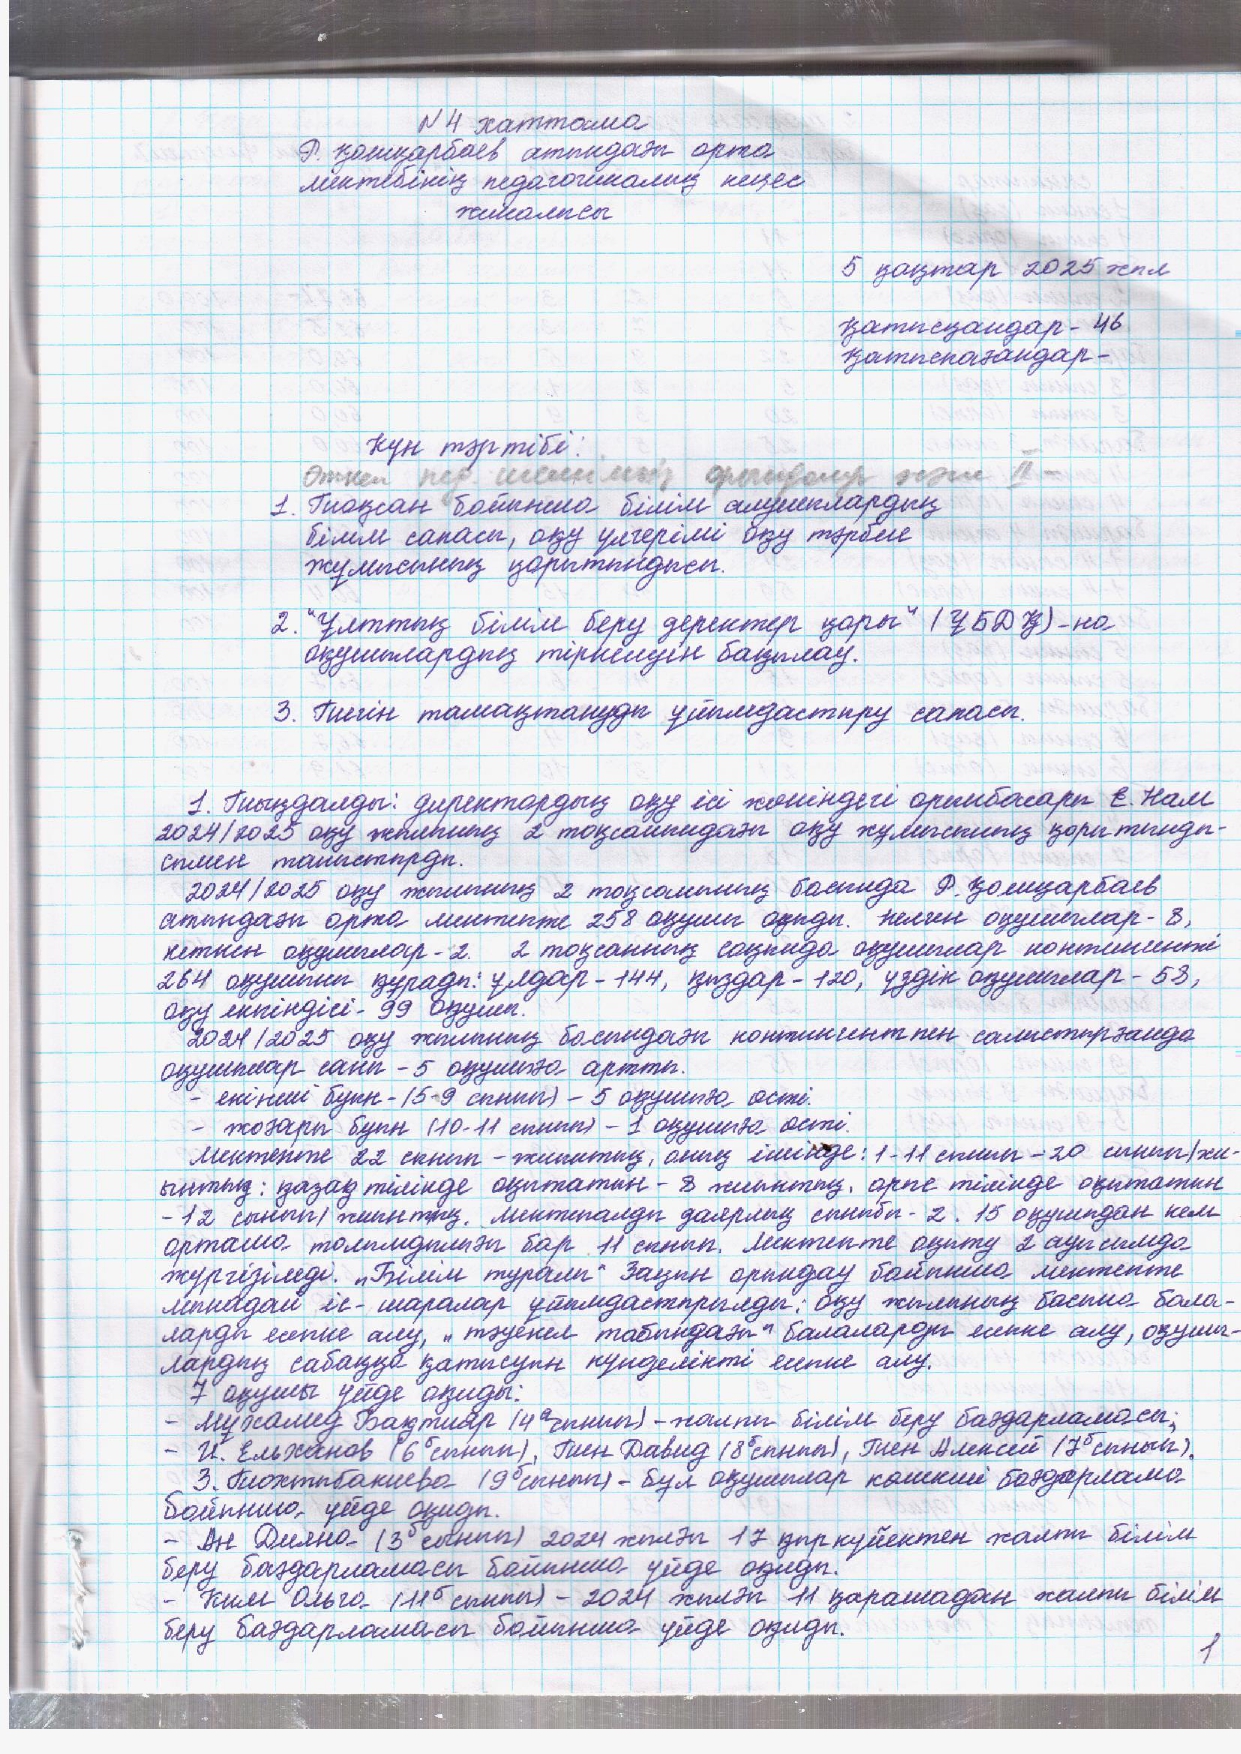 №4 хаттама
Р. Қошқарбаев атындағы орта
мектебінің педагогикалық кеңес
жиналысы
5 қаңтар 2025 жыл
Қатысқандар - 46
Қатыспағандар -
Күн тәртібі:
Өткен пед. және II -
1. Тоқсан бойынша білім алушылардың
білім сапасы, оқу үлгерімі оқу тәрбие
жұмысының қорытындысы.
2. "Ұлттық білім беру деректер қоры" (ҰБДҚ)-на
оқушылардың тіркелуін бақылау.
3. Тегін тамақтануды ұйымдастыру сапасы.
1. Тыңдалды: директордың оқу ісі жөніндегі орынбасары Е. Нам
2024/2025 оқу жылының 2 тоқсанындағы оқу жұмысының қорытынды-
сымен таныстырды.
2024/2025 оқу жылының 2 тоқсанының басында Р. Қошқарбаев
атындағы орта мектепте 258 оқушы оқыды. Келген оқушылар - 8,
кеткен оқушылар - 2. 2 тоқсанның соңында оқушылар контингенті
264 оқушыны құрады: ұлдар - 144, қыздар - 120, үздік оқушылар - 53,
оқу екпіндісі - 99 оқушы.
2024/2025 оқу жылының басындағы контингентпен салыстырғанда
оқушылар саны - 5 оқушыға артты.
- екінші буын - (5-9 сынып) - 5 оқушыға өсті.
- жоғары буын (10-11 сынып) - 1 оқушыға өсті.
Мектепте 22 сынып - жиынтық, оның ішінде: 1-11 сынып - 20 сынып/жи-
ынтық: қазақ тілінде оқытатын - 8 жиынтық, орыс тілінде оқытатын
- 12 сынып/жиынтық. Мектепалды даярлық сыныбы - 2. 15 оқушыдан кем
орташа толымдылығы бар 11 сынып. Мектепте оқыту 2 ауысымда
жүргізіледі. „Білім туралы" Заңын орындау бойынша мектепте
мынадай іс-шаралар ұйымдастырылды: оқу жылының басына бала-
ларды есепке алу, „тәуекел тобындағы" балаларды есепке алу, оқушы-
лардың сабаққа қатысуын күнделікті есепке алу.
7 оқушы үйде оқиды:
- Мухамед Бақтияр (4ᵃ сынып) - жалпы білім беру бағдарламасы;
- И. Ельжанов (6ᵟ сынып), Тен Давид (8ᵟ сынып), Тен Алексей (7ᵟ сынып),
З. Тохтыбакиева (9ᵟ сынып) - бұл оқушылар кәмші бағдарлама
бойынша үйде оқиды.
- Ан Диана (3ᵟ сынып) 2024 жылғы 17 қыркүйектен жалпы білім
беру бағдарламасы бойынша үйде оқиды.
- Ким Ольга (11ᵟ сынып) - 2024 жылғы 11 қарашадан жалпы білім
беру бағдарламасы бойынша үйде оқиды.
1